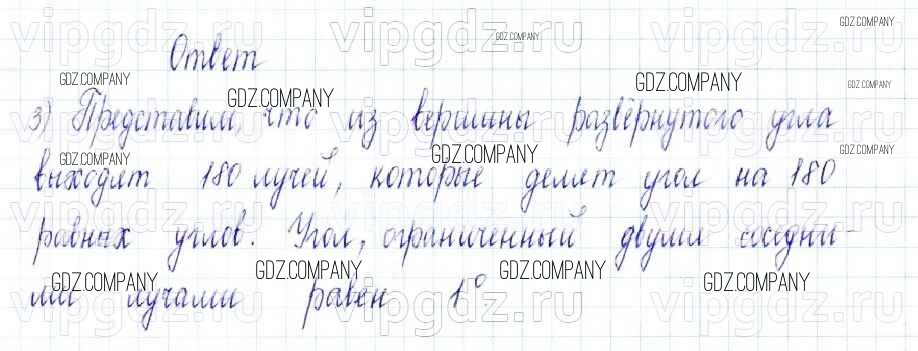 vipgdz.ru vipgdz.ru vipgdz.ru
GDZ.COMPANY
GDZ.COMPANY
Ответ
GDZ.COMPANY GDZ.COMPANY GDZ.COMPANY GDZ.COMPANY
3) Представим, что из вершины развёрнутого угла
vipgdz.ru vipgdz.ru vipgdz.ru
GDZ.COMPANY GDZ.COMPANY GDZ.COMPANY
выходят 180 лучей, которые делят угол на 180
vipgdz.ru vipgdz.ru vipgdz.ru
равных углов. Угол, ограниченный двумя соседни-
GDZ.COMPANY GDZ.COMPANY GDZ.COMPANY GDZ.COMPANY
ми лучами равен 1°
vipgdz.ru vipgdz.ru vipgdz.ru